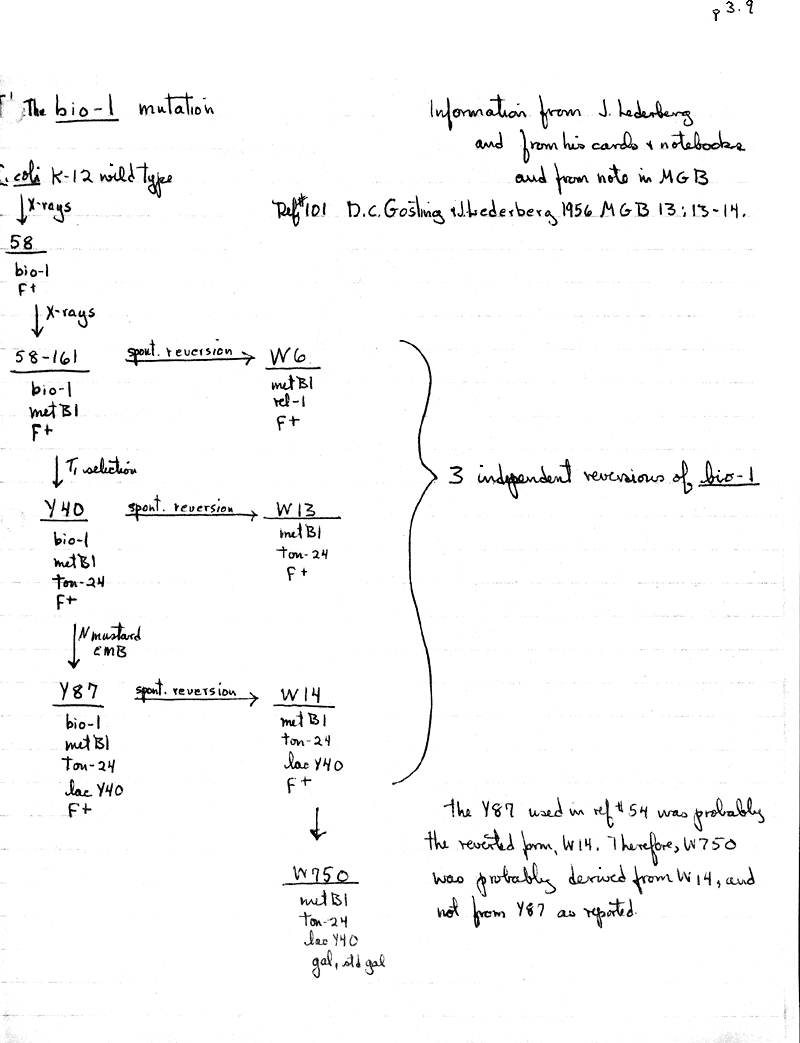 p 3.9
The bio-1 mutation
Information from J. Lederberg
and from his cards & notebooks
and from note in MGB
Ref #101 D.C. Gosling & J. Lederberg 1956 MGB 13:13-14.
E. coli K-12 wild type
X-rays
58
bio-1
F+
X-rays
58-161
bio-1
metB1
F+
spont. reversion
W6
metB1
rel-1
F+
T1 selection
Y40
bio-1
metB1
ton-24
F+
spont. reversion
W13
metB1
ton-24
F+
3 independent reversions of bio-1
N mustard
EMB
Y87
bio-1
metB1
ton-24
lac Y40
F+
spont. reversion
W14
metB1
ton-24
lac Y40
F+
W750
metB1
ton-24
lac Y40
gal, std gal
The Y87 used in ref #54 was probably
the reverted form, W14. Therefore, W750
was probably derived from W14, and
not from Y87 as reported.